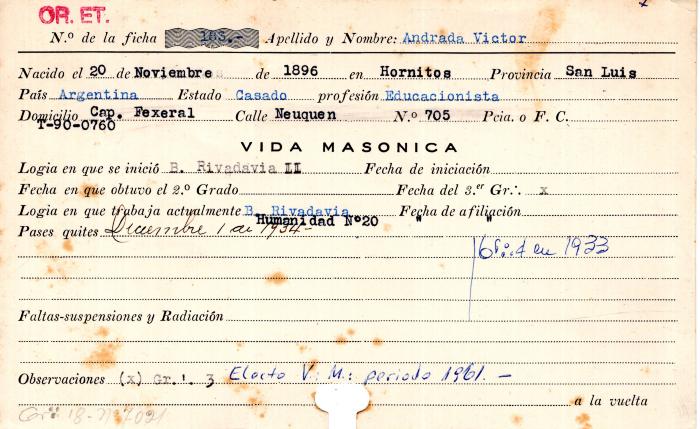 OR. ET.
N.º de la ficha 183.- Apellido y Nombre: Andrada Victor
Nacido el 20 de Noviembre de 1896 en Hornitos Provincia San Luis
País Argentina Estado Casado profesión Educacionista
Domicilio Cap. Fexeral Calle Neuquen N.º 705 Pcia. o F. C.
T-90-0760
VIDA MASONICA
Logia en que se inició B. Rivadavia II Fecha de iniciación
Fecha en que obtuvo el 2.º Grado Fecha del 3.er Gr∴ x
Logia en que trabaja actualmente B. Rivadavia Fecha de afiliación
Humanidad Nº20 " "
Pases quites Diciembre 1 de 1934-
en 1933
Faltas-suspensiones y Radiación
Observaciones (x) Gr.'. 3 Electo V∴ M∴ periodo 1961. -
a la vuelta